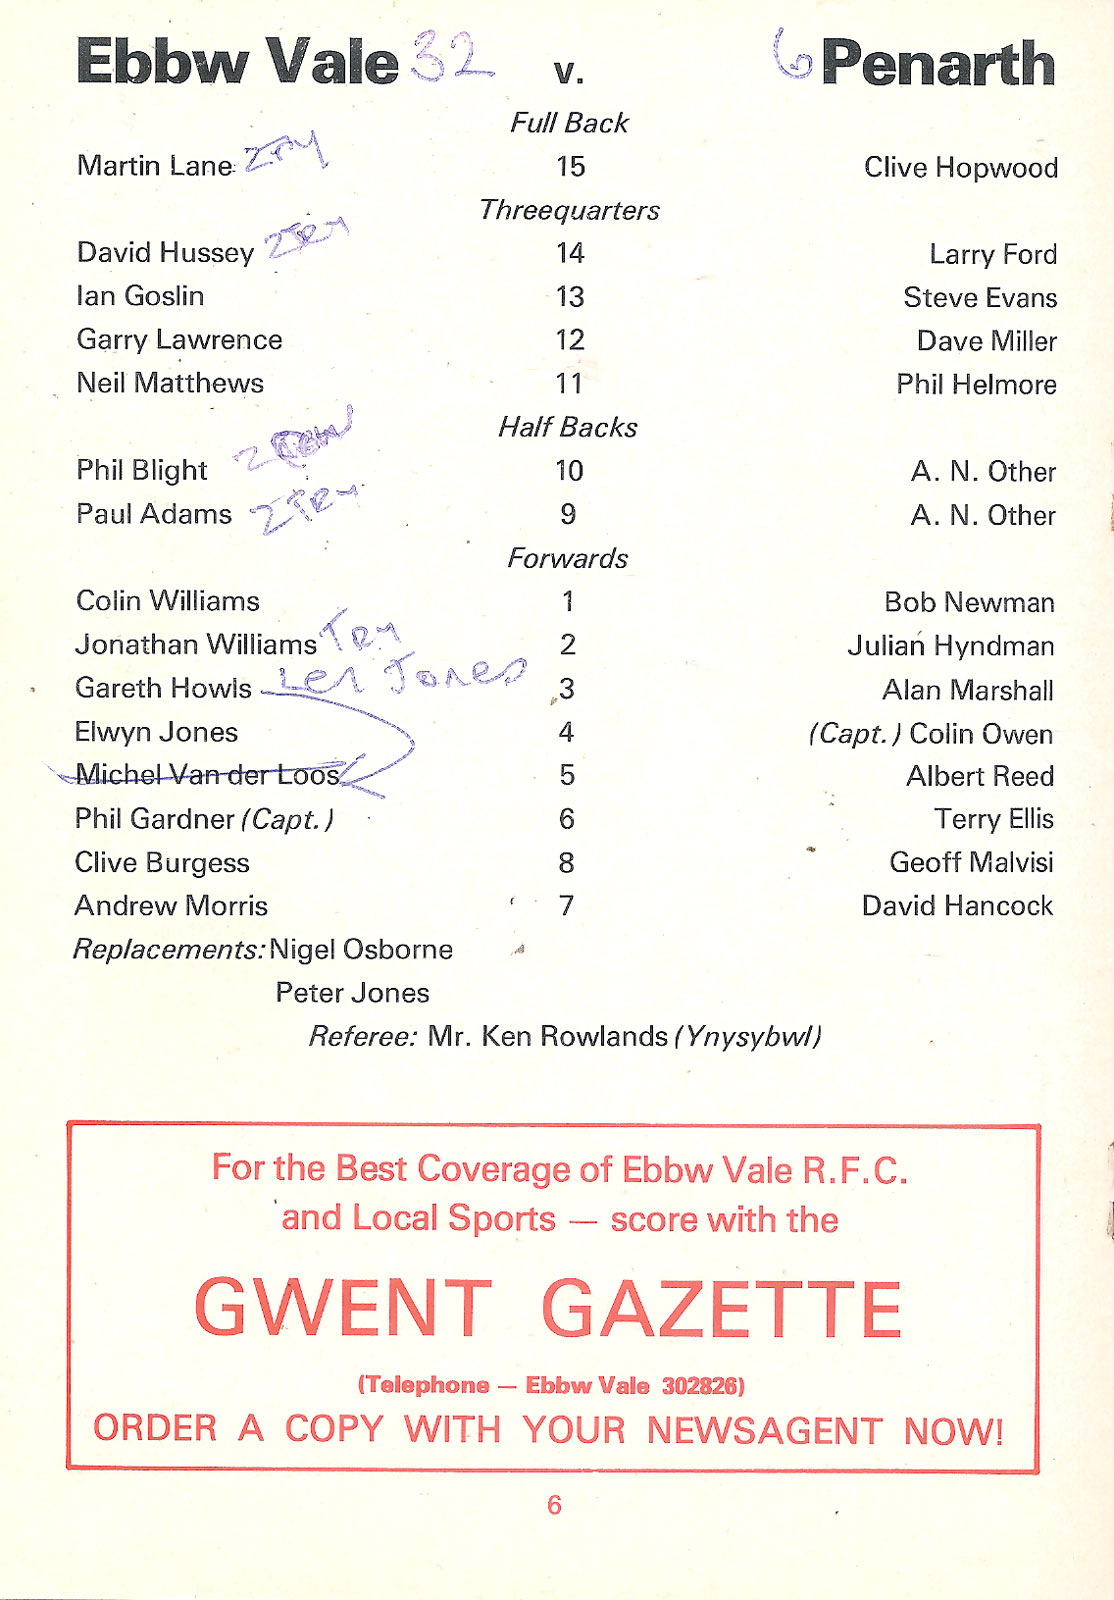 Ebbw Vale 32 v. 6 Penarth
Full Back
Martin Lane 2TRY 15 Clive Hopwood
Threequarters
David Hussey 2TRY 14 Larry Ford
Ian Goslin 13 Steve Evans
Garry Lawrence 12 Dave Miller
Neil Matthews 11 Phil Helmore
Half Backs
Phil Blight 2 10 A. N. Other
Paul Adams 2TRY 9 A. N. Other
Forwards
Colin Williams 1 Bob Newman
Jonathan Williams TRY 2 Julian Hyndman
Gareth Howls Len Jones 3 Alan Marshall
Elwyn Jones 4 (Capt.) Colin Owen
Michel Van der Loos 5 Albert Reed
Phil Gardner (Capt.) 6 Terry Ellis
Clive Burgess 8 Geoff Malvisi
Andrew Morris 7 David Hancock
Replacements: Nigel Osborne
Peter Jones
Referee: Mr. Ken Rowlands (Ynysybwl)
For the Best Coverage of Ebbw Vale R.F.C.
and Local Sports — score with the
GWENT GAZETTE
(Telephone — Ebbw Vale 302826)
ORDER A COPY WITH YOUR NEWSAGENT NOW!
6